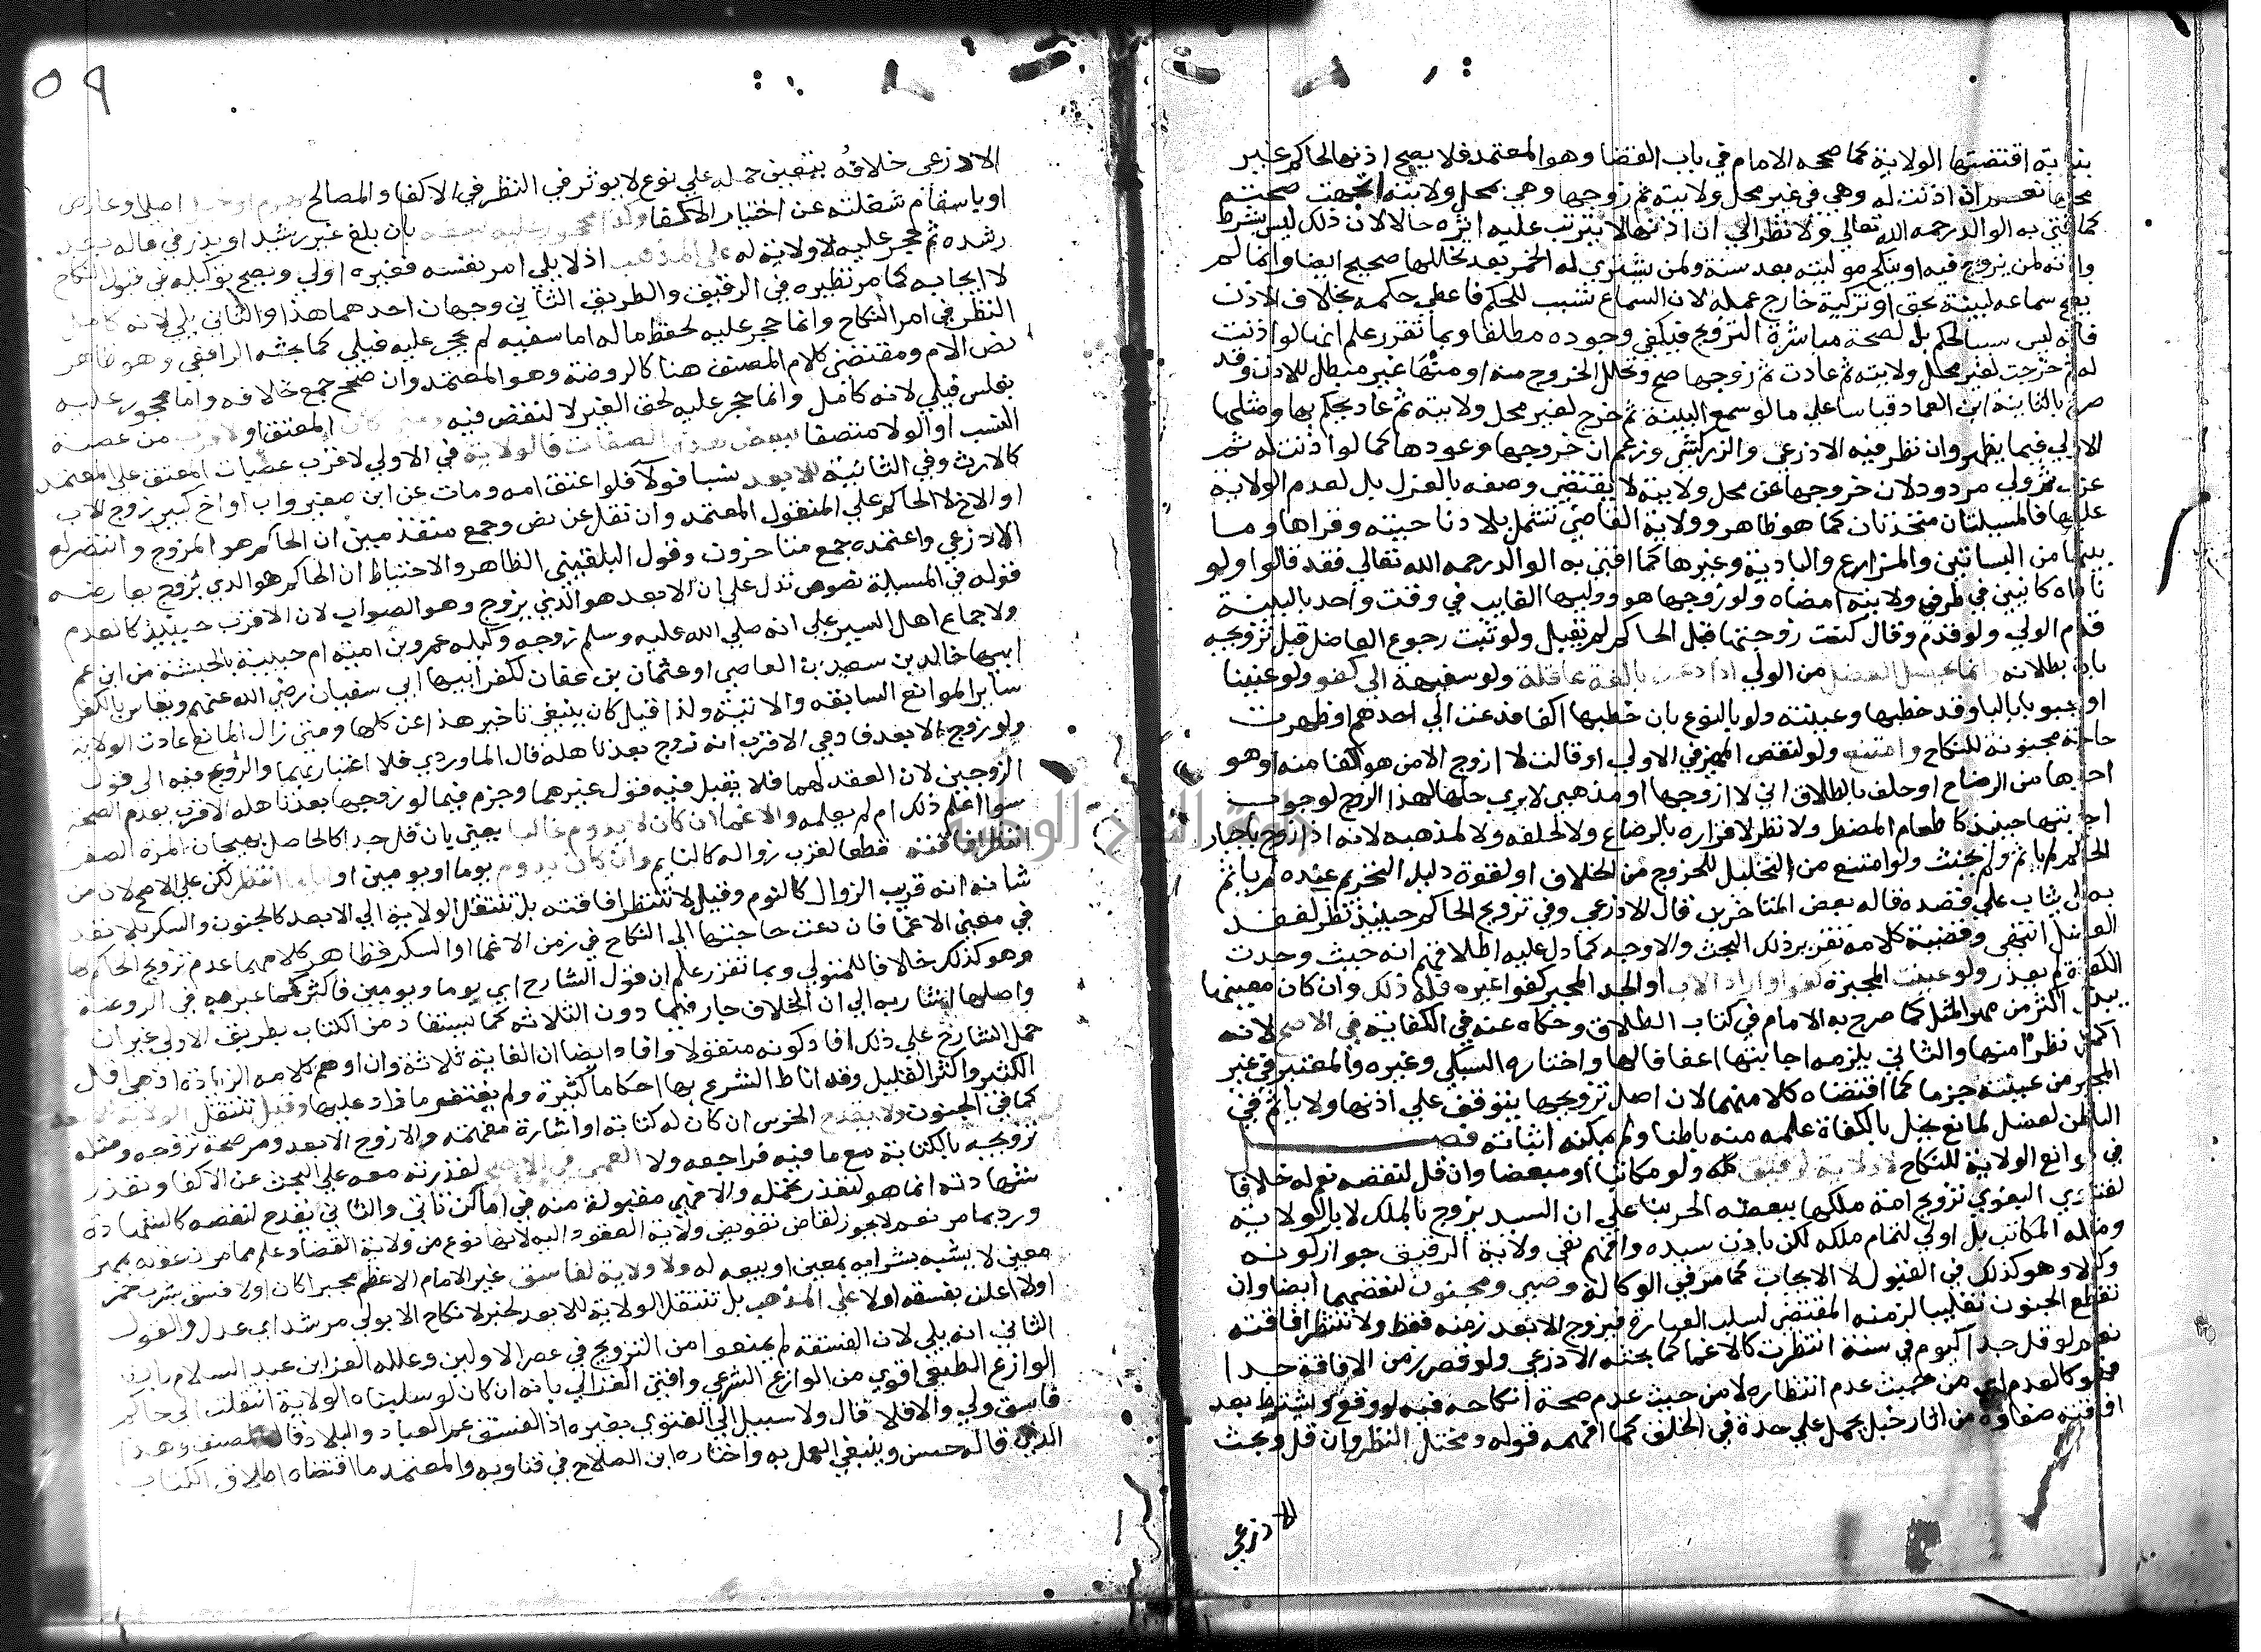 بنيابة اقتضتها الولاية كما صححه الامام في باب القضا وهو المعتمد فلا يصح اذنها لحاكم غير
محلها نعم ان اذنت له وهي في غير محل ولايته ثم زوجها وهي بمحل ولايته اتجهت صحته
كما افتى به الوالد رحمه الله تعالي ولا نظر الي ان اذنها لا يترتب عليه اثره حالا لان ذلك ليس بشرط
يصح سماعه لبينة بحق او تزكية خارج عمله لان السماع سبب للحكم فاعطي حكمه بخلاف الاذن
فانه ليس سببا لحكم بل لصحة مباشرة التزويج فيكفي وجوده مطلقا وبما تقرر علم انها لو اذنت
له ثم خرجت لغير محل ولايته ثم عادت ثم زوجها صح وتخلل الخروج منه او منها غير مبطل للاذن وقد
صرح بالثانية ابن العماد قياسا علي ما لو سمع البينة ثم خرج لغير محل ولايته ثم عاد يحكم بها ومثلها
الاولي فيما يظهر وان نظر فيه الاذرعي والزركشي وزعم ان خروجها وعودها كما لو اذنت له ثم
عزل ثم ولي مردود لان خروجها عن محل ولايته لا يقتضي وصفه بالعزل بل لعدم الولاية
عليها فالمسيلتان متحدتان كما هو ظاهر وولاية القاضي تشمل بلاد ناحيته وقراها وما
بينهما من البساتين والمزارع والبادية وغيرها كما افتي به الوالد رحمه الله تعالي فقد قالوا ولو
ناداه كاينين في طرفي ولايته امضاه ولو زوجها هو ووليها الغايب في وقت واحد بالبينة
قدم الولي ولو قدم وقال كنت زوجتها قبل الحاكم لم يقبل ولو ثبت رجوع العاضل قبل تزويجه
بان بطلانه وانما يحصل العضل من الولي اذا دعت بالغة عاقلة ولو سفيهة الي كفو ولو عنينا
او مجبوبا بالبا وقد خطبها وعينته ولو بالنوع بان خطبها اكفا فدعت الي احدهم او ظهرت
حاجة مجنونة للنكاح وامتنع ولو لنقص المهر في الاولي او قالت لا ازوج الا من هو اكفا منه او هو
اخوها من الرضاع او حلف بالطلاق اني لا ازوجها او مذهبي لا يري حلها لهذا الزوج لوجوب
اجابتها حينئذ كاطعام المضطر ولا نظر لاقراره بالرضاع ولا لحلفه ولا لمذهبه لانه اذا زوج باجبار
الحاكم لم ياثم ولم يحنث ولو امتنع من التحليل للخروج من الخلاف او لقوة دليل التحريم عنده لم ياثم
بل يثاب علي قصده قاله بعض المتاخرين قال الاذرعي وفي تزويج الحاكم حينئذ نظر لفقد
العضل انتهي وقضية كلامه تقرير ذلك البحث والاوجه كما دل عليه اطلاقهم انه حيث وجدت
الكفاة لم يعذر ولو عينت المجبرة كفوا واراد الاب او الجد المجبر كفوا غيره فله ذلك وان كان معينها
يبذل اكثر من مهر المثل كما صرح به الامام في كتاب الطلاق وحكاه عنه في الكفاية في الاصح لانه
اكمل نظرا منها والثاني يلزمه اجابتها اعفافا لها واختاره السبكي وغيره والمعتبر في غير
المجبر من عينته جزما كما اقتضاه كلامهما لان اصل تزويجها يتوقف علي اذنها ولا ياثم في
الباطن لعضل لمانع يخل بالكفاة علمه منه باطنا ولم يمكنه اثباته فصل
في موانع الولاية للنكاح لا ولاية لرقيق كله ولو مكاتبا او مبعضا وان قل لنقصه نعم له خلافا
لفتاوي البغوي تزويج امة ملكها ببعضه الحر بنا علي ان السيد يزوج بالملك لا بالولاية
ومثله المكاتب بل اولي لتمام ملكه لكن باذن سيده وافهم نفي ولاية الرقيق جواز كونه
وكيلا وهو كذلك في القبول لا الايجاب كما مر في الوكالة وصبي ومجنون لنقصهما ايضا وان
تقطع الجنون تغليبا لزمنه المقتضي لسلب العبارة فيزوج الابعد زمنه فقط ولا تنتظر افاقته
نعم لو قل جدا كيوم في سنة انتظرت كالاغما كما بحثه الاذرعي ولو قصر زمن الافاقة جدا
فهو كالعدم اي من حيث عدم انتظاره لا من حيث عدم صحة انكاحه فيه لو وقع واشترط بعد
افاقته صفاوه من اثار خبل يحمل علي حدة في الخلق كما افهمه قوله ومختل النظر وان قل وبحث
الاذرعي
٥٩
الاذرعي خلافه يتعين حمله علي نوع لا يوثر في النظر في الاكفا والمصالح بهرم او خبل اصلي وعارض
او باسقام شغلته عن اختيار الاكفا وكذا محجور عليه بسفه بان بلغ غير رشيد او بذر في ماله بعد
رشده ثم حجر عليه لا ولاية له علي المذهب اذ لا يلي امر نفسه فغيره اولي ويصح توكيله في قبول النكاح
لا ايجابه كما مر نظيره في الرقيق والطريق الثاني وجهان احدهما هذا والثاني يلي لانه كامل
النظر في امر النكاح وانما حجر عليه لحفظ ماله اما سفيه لم يحجر عليه فيلي كما بحثه الرافعي وهو ظاهر
نص الام ومقتضي كلام المصنف هنا كالروضة وهو المعتمد وان صحح جمع خلافه واما محجور عليه
بفلس فيلي لانه كامل وانما حجر عليه لحق الغير لا لنقص فيه ومتي كان المعتق او الاقرب من عصبة
النسب او الولا متصفا ببعض هذه الصفات فالولاية في الاولي لاقرب عصبات المعتق علي المعتمد
كالارث وفي الثانية للابعد نسبا فولآ فلو اعتق امه ومات عن ابن صغير واب او اخ كبير زوج الاب
او الاخ لا الحاكم علي المنقول المعتمد وان نقل عن نص وجمع متقدمين ان الحاكم هو المزوج وانتصر له
الاذرعي واعتمده جمع متاخرون وقول البلقيني الظاهر والاحتياط ان الحاكم هو الذي يزوج يعارضه
قوله في المسيلة نصوص تدل علي ان الابعد هو الذي يزوج وهو الصواب لان الاقرب حينئذ كالعدم
ولاجماع اهل السير علي انه صلي الله عليه وسلم زوجه وكيله عمرو بن امية ام حبيبة بالحبشة من ابن عم
ابيها خالد بن سعيد بن العاصي او عثمان بن عفان لكفر ابيها ابي سفيان رضي الله عنهم ويقاس بالكفر
ساير الموانع السابقه والاتية ولذا قيل كان ينبغي تاخير هذا عن كلها ومتي زال المانع عادت الولاية
ولو زوج الابعد فادعي الاقرب انه زوج بعد تاهله قال الماوردي فلا اعتبار بهما والرجوع فيه الي قول
الزوجين لان العقد لهما فلا يقبل فيه قول غيرهما وجزم فيما لو زوجها بعد تاهله الاقرب بعدم الصحة
سوا اعلم ذلك ام لم يعلمه والاغما ان كان لا يدوم غالبا يعني بان قل جدا كالحاصل بهيجان المرة الصفرا
انتظر افاقته قطعا لقرب زواله كالنايم وان كان يدوم يوما او يومين او اياما انتظر لكن علي الاصح لان من
شانه انه قريب الزوال كالنوم وقيل لا تنتظر افاقته بل تنتقل الولاية الي الابعد كالجنون والسكر بلا تعد
في معني الاغما فان دعت حاجتها الي النكاح في زمن الاغما او السكر فظاهر كلامهما عدم تزويج الحاكم لها
وهو كذلك خلافا للمتولي وبما تقرر علم ان قول الشارح اي يوما ويومين فاكثر كما عبر به في الروضة
واصلها اشار به الي ان الخلاف جار فيما دون الثلاثه كما يستفاد من الكتاب بطريق الاولي غير ان
حمل الشارح علي ذلك افاد كونه منقولا وافاد ايضا ان الغاية ثلاثة وان اوهم كلامه الزيادة اذ هي اقل
الكثير واكثر القليل وقد اناط الشرع بها احكاما كثيرة ولم يغتفر ما زاد عليها وقيل تنتقل الولاية للابعد
كما في الجنون ولا يقدح الخرس ان كان له كتابة او اشارة مفهمة والا زوج الابعد ومر صحة تزوجه ومثله
تزويجه بالكتابة مع ما فيه فراجعه ولا العمي في الاصح لقدرته معه علي البحث عن الاكفا وتعذر
شهادته انما هو لتعذر تحمله والا فهي مقبولة منه في اماكن تاتي والثاني يقدح لنقصه كالشهادة
ورد بما مر نعم لا يجوز لقاض تفويض ولاية العقود اليه لانها نوع من ولاية القضا وعلم مما مر ان عقده بمهر
معين لا يشبه بشرايه بمعين او بيعه له ولا ولاية لفاسق غير الامام الاعظم مجبرا كان او لا فسق بشرب خمر
اولا اعلن بفسقه اولا علي المذهب بل تنتقل الولاية للابعد لخبر لا نكاح الا بولي مرشد اي عدل والقول
الثاني انه يلي لان الفسقة لم يمنعوا من التزويج في عصر الاولين وعلله العز ابن عبد السلام بان
الوازع الطبعي اقوي من الوازع الشرعي وافتي الغزالي بانه ان كان لو سلبناه الولاية انتقلت الي حاكم
فاسق ولي والا فلا قال ولا سبيل الي الفتوي بغيره اذ الفسق عم العباد والبلاد قال المصنف وهذا
الذي قاله حسن وينبغي العمل به واختاره ابن الصلاح في فتاويه والمعتمد ما اقتضاه اطلاق الكتاب